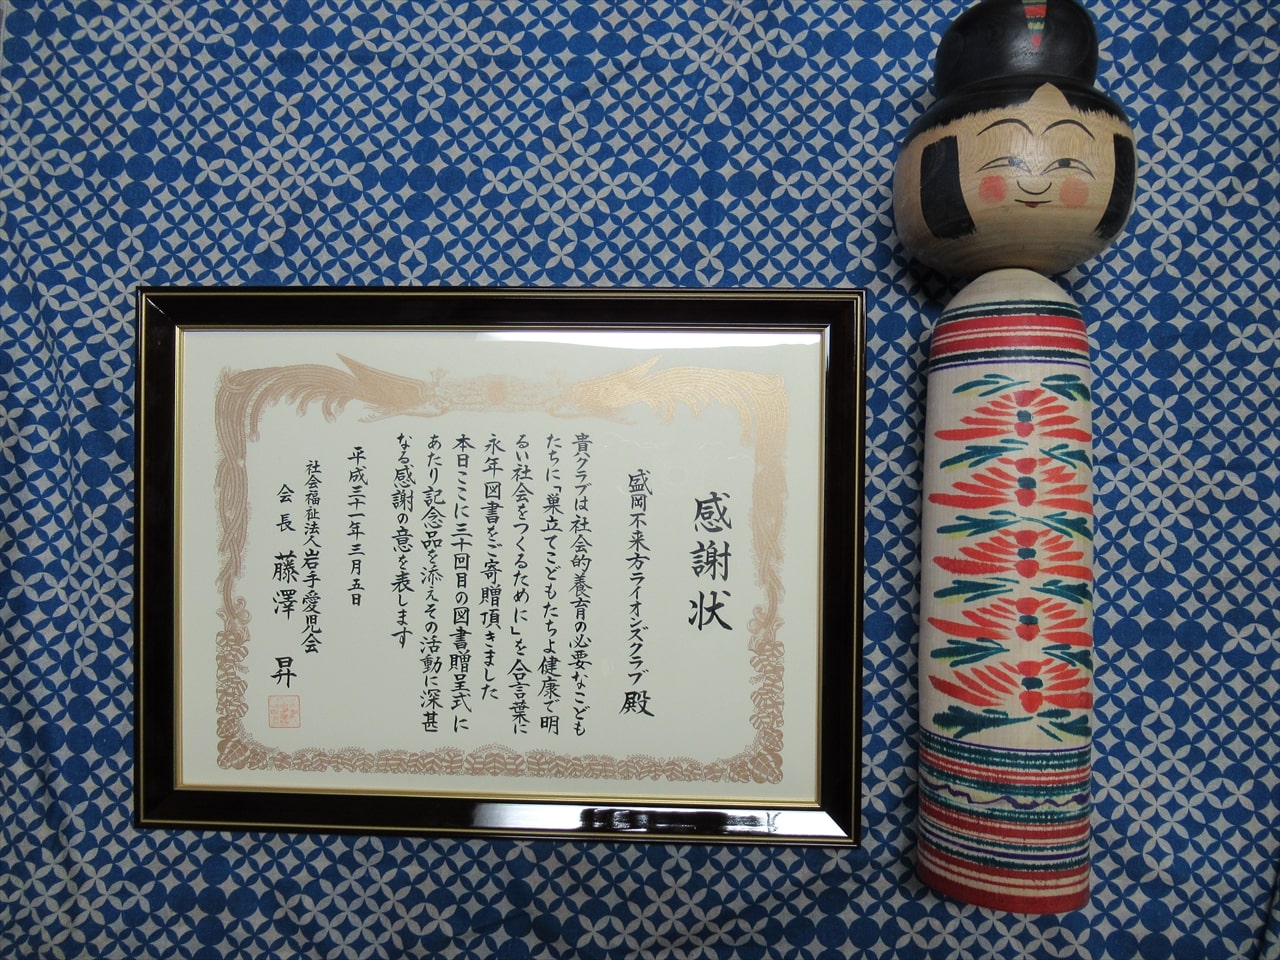 感謝状
盛岡不来方ライオンズクラブ殿
貴クラブは社会的養育の必要なこども
たちに「巣立てこどもたちよ健康で明
るい社会をつくるために」を合言葉に
永年図書をご寄贈頂きました
本日ここに三十回目の図書贈呈式に
あたり記念品を添えその活動に深甚
なる感謝の意を表します
平成三十一年三月五日
社会福祉法人岩手愛児会
会長 藤澤 昇